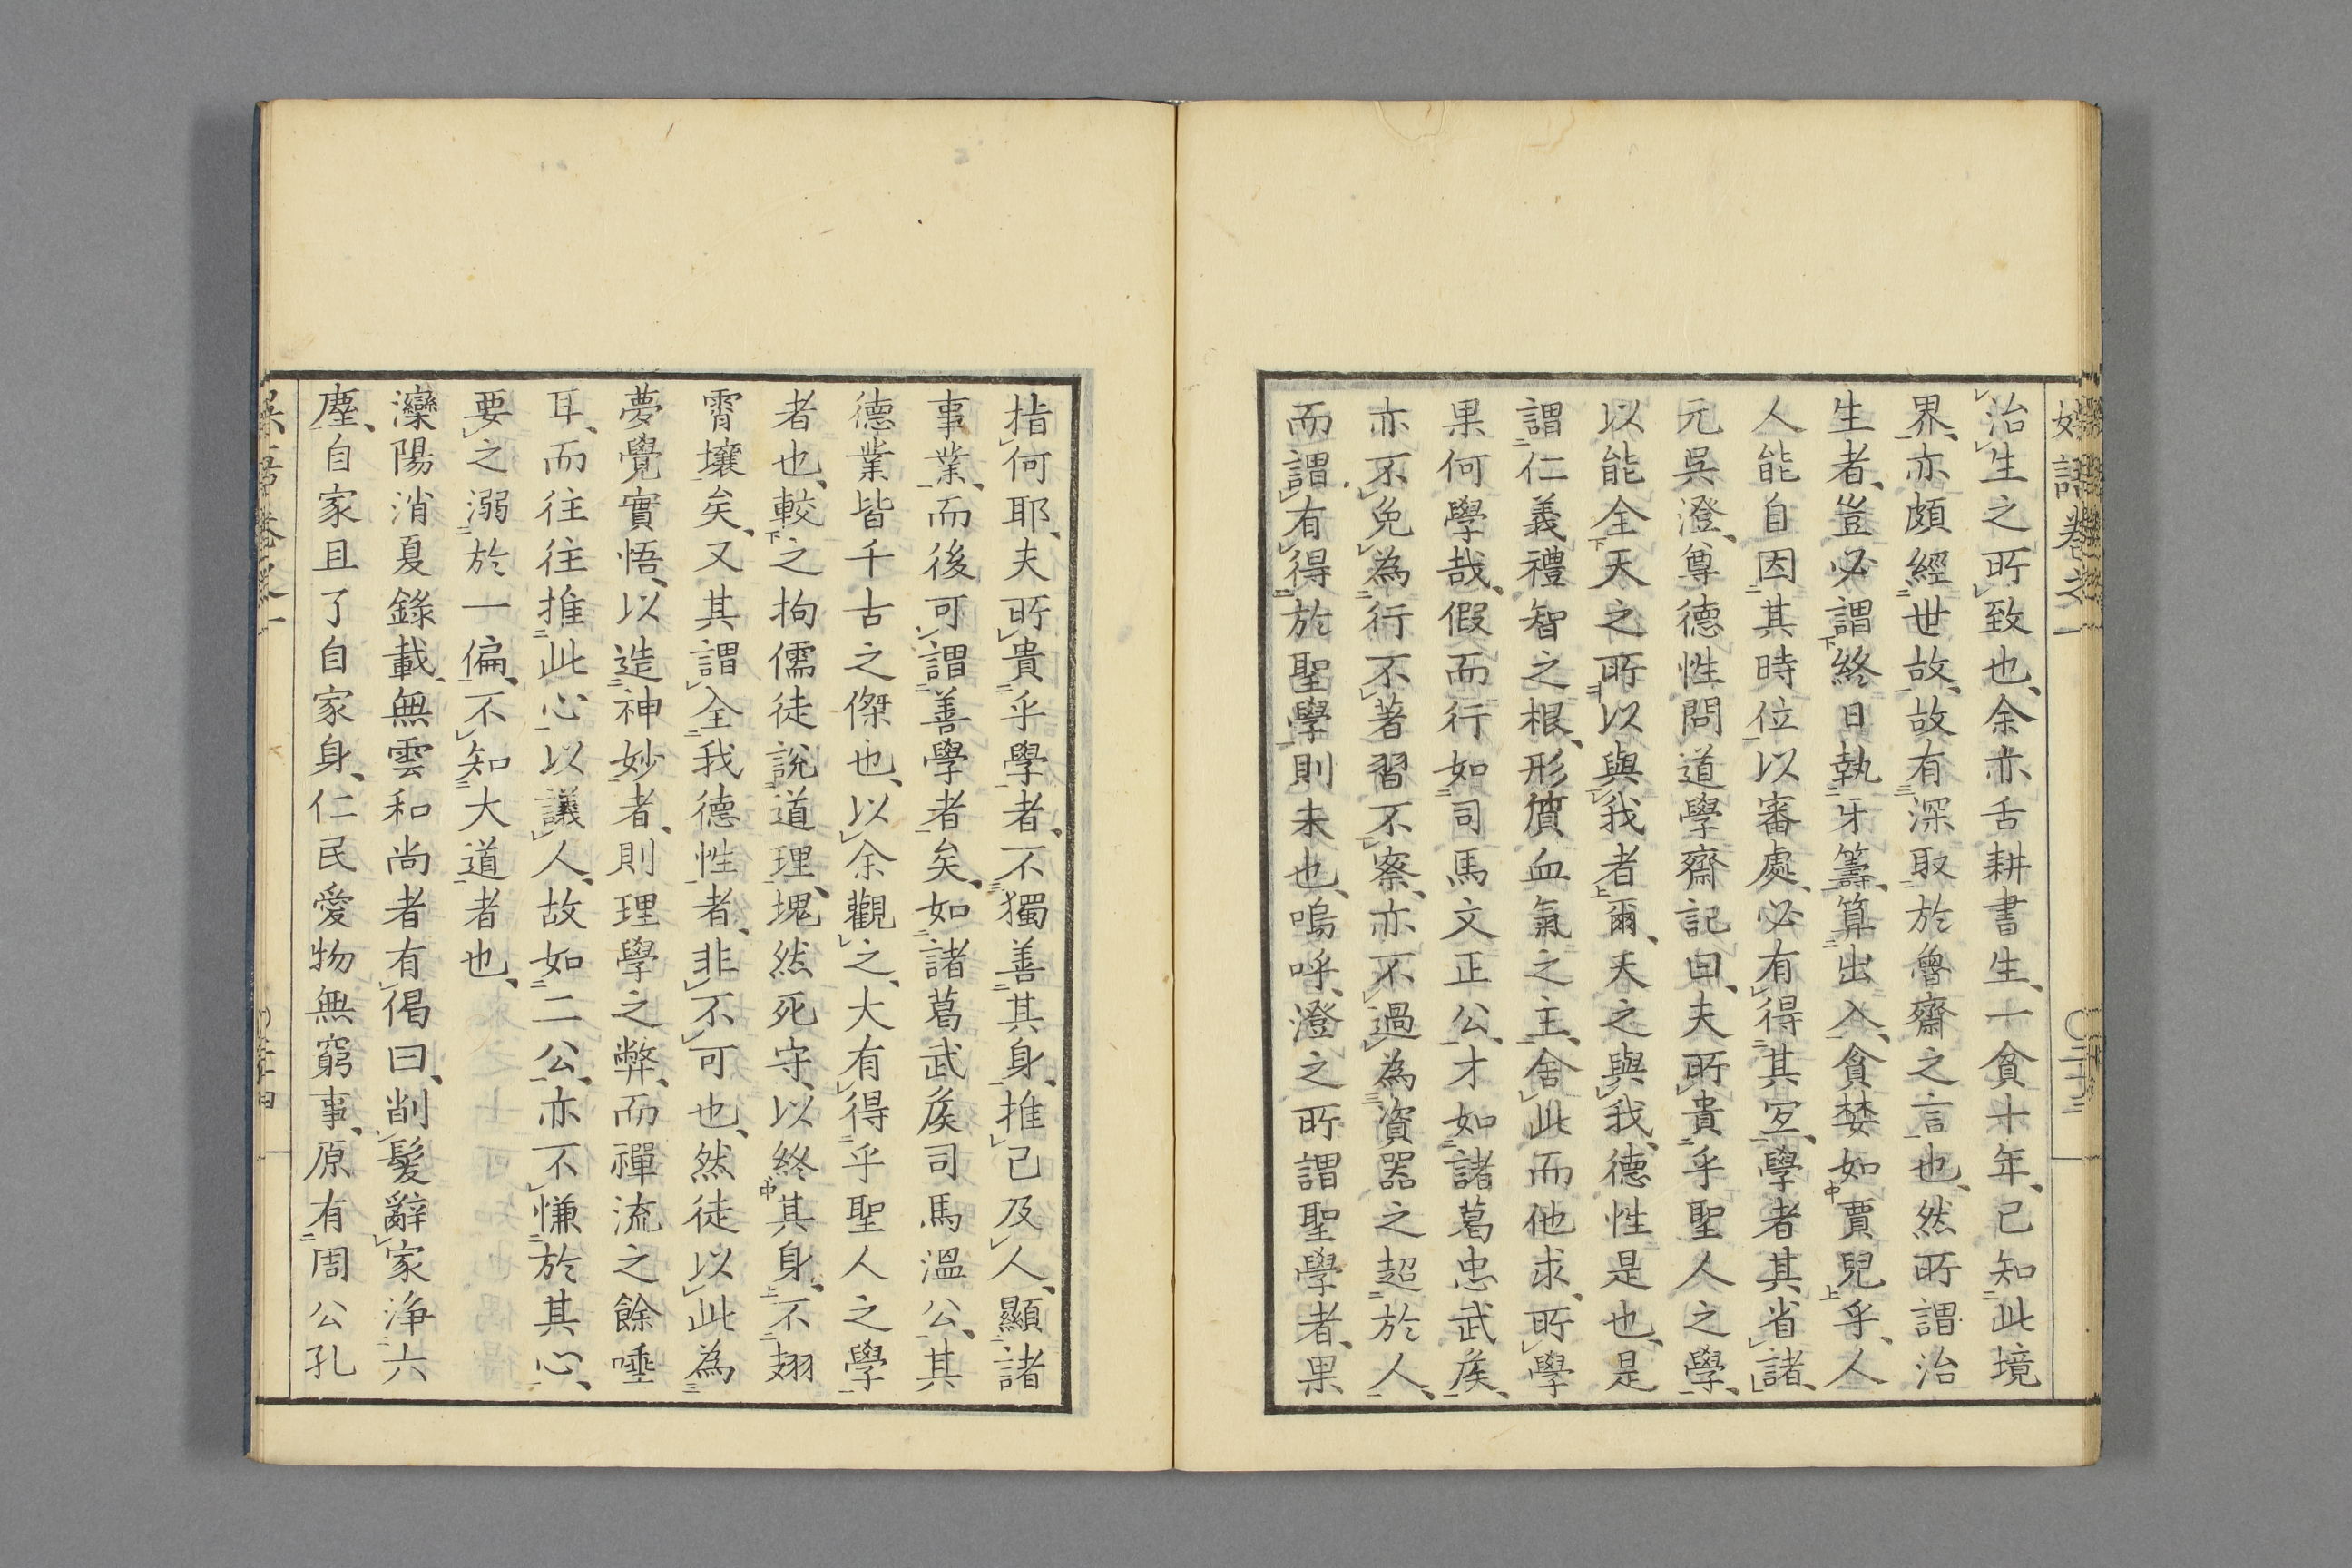 治生之所致也、余亦舌耕書生、一貧十年、己知此境
界、亦頗經世故、故有深取於魯齋之言也、然所謂治
生者、豈必謂終日執牙籌、算出入、貪婪如賈兒乎、人
人能自因其時位以審處、必有得其宜、學者其省諸、
元吳澄、尊德性問道學齋記曰、夫所貴乎聖人之學、
以能全天之所以與我者爾、天之與我、德性是也、是
謂仁義禮智之根、形質血氣之主、舍此而他求、所學
果何學哉、假而行如司馬文正公、才如諸葛忠武矦、
亦不免為行不著習不察、亦不過為資器之超於人、
而謂有得於聖學則未也、嗚呼、澄之所謂聖學者、果
指何耶、夫所貴乎學者、不獨善其身、推己及人、顯諸
事業、而後可謂善學者矣、如諸葛武矦司馬溫公、其
德業皆千古之傑也、以余觀之、大有得乎聖人之學
者也、較之拘儒徒說道理、塊然死守、以終其身、不翅
霄壤矣、又其謂全我德性者、非不可也、然徒以此為
夢覺實悟、以造神妙者、則理學之弊、而禪流之餘唾
耳、而往往推此心以議人、故如二公、亦不慊於其心、
要之溺於一偏、不知大道者也、
灤陽消夏錄載、無雲和尚者有偈曰、削髮辭家淨六
塵、自家且了自家身、仁民愛物無窮事、原有周公孔